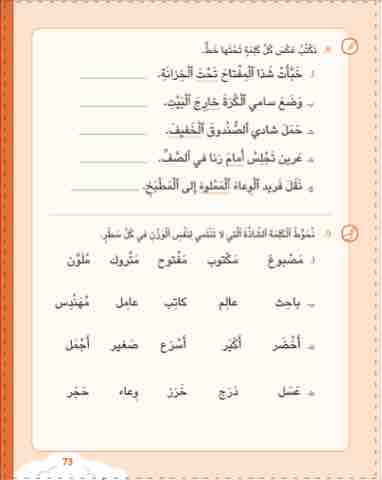 ٨. نَكْتُبُ عَكْسَ كُلِّ كَلِمَةٍ تَحْتَها خَطٌّ.
أ. خَبَّأَتْ هُدَا ٱلْمِفْتاحَ تَحْتَ ٱلْخِزانَةِ.
ب. وَضَعَ سامي ٱلْكُرَةَ خارِجَ ٱلْبَيْتِ.
جـ. حَمَلَ شادي ٱلصُّنْدوقَ ٱلْخَفيفَ.
د. عَرين تَجْلِسُ أَمامَ رَنا في ٱلصَّفِّ.
هـ. نَقَلَ فَريد ٱلْوِعاءَ ٱلْمَمْلوءَ إِلى ٱلْمَطْبَخِ.
٩. نُحَوِّطُ ٱلْكَلِمَةَ ٱلشّاذَّةَ ٱلَّتي لا تَنْتَمي لِنَفْسِ ٱلْوَزْنِ في كُلِّ سَطْرٍ.
أ. مَصْبوغ مَكْتوب مَفْتوح مَتْروك مُلَوَّن
ب. باحِث عالِم كاتِب عامِل مُهَنْدِس
جـ. أَخْضَر أَكْبَر أَسْرَع صَغير أَجْمَل
د. عَسَل دَرَج خَرَز وِعاء حَجَر
73